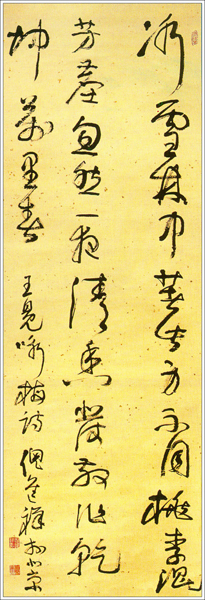 冰雪林中著此身不同桃李混
芳塵忽然一夜清香發散作乾
坤萬里春
王冕咏梅詩 於北京